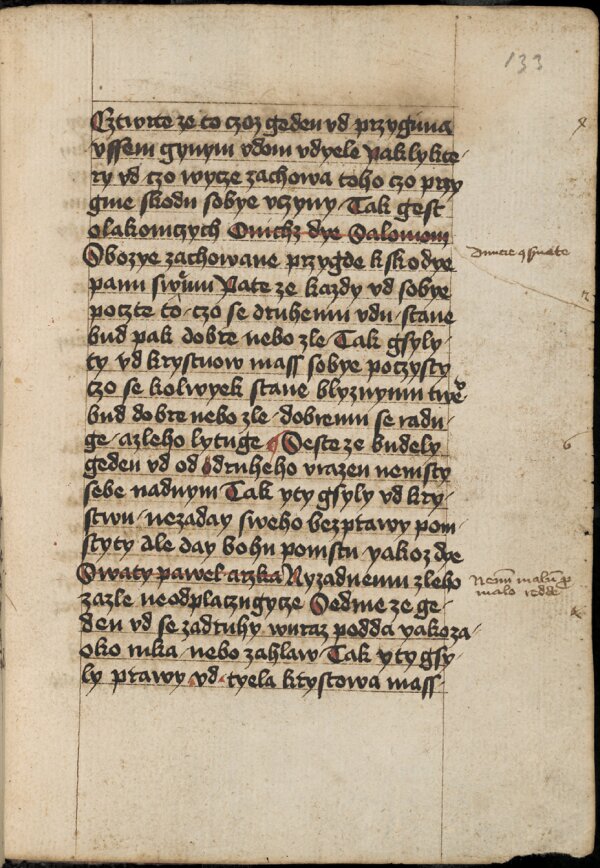 133
Cztwrte ze to czoz geden vd przygima
vssem gynym vdom vdyele Paklykte-
ry vd czo wycze zachowa toho czo przy
gme skodu sobye vczyny Tak gest
olakomczych O nichz dye Salomon
Sbozye zachowane przygde k skodye
panu swemu Pate ze kazdy vd sobye
poczte to czo se druhemu vdu stane
bud pak dobre nebo zle Tak gsyly
ty vd krystuow mass sobye poczysty
czo se kolwyek stane blyznymu twe͏ͦ
bud dobre nebo zle dobremu se radu-
ge azleho lytuge Seste ze budely
geden vd od druheho vrazen nemsty
sebe nadnym Tak yty gsyly vd kry-
stuu nezaday sweho bezprawy pom-
styty Ale day bohu pomstu yakoz dye
Swaty pawel arzka Nyzadnemu zleho
zazle neodplaczugycze Sedme ze ge-
den vd se zadruhy wuraz podda yakoza-
oko ruka nebo zahlaw Tak yty gsy-
ly prawy vd tyela krystowa mass
Diuicie ꝯẜuate
Nemī malū ꝓ
malo redde